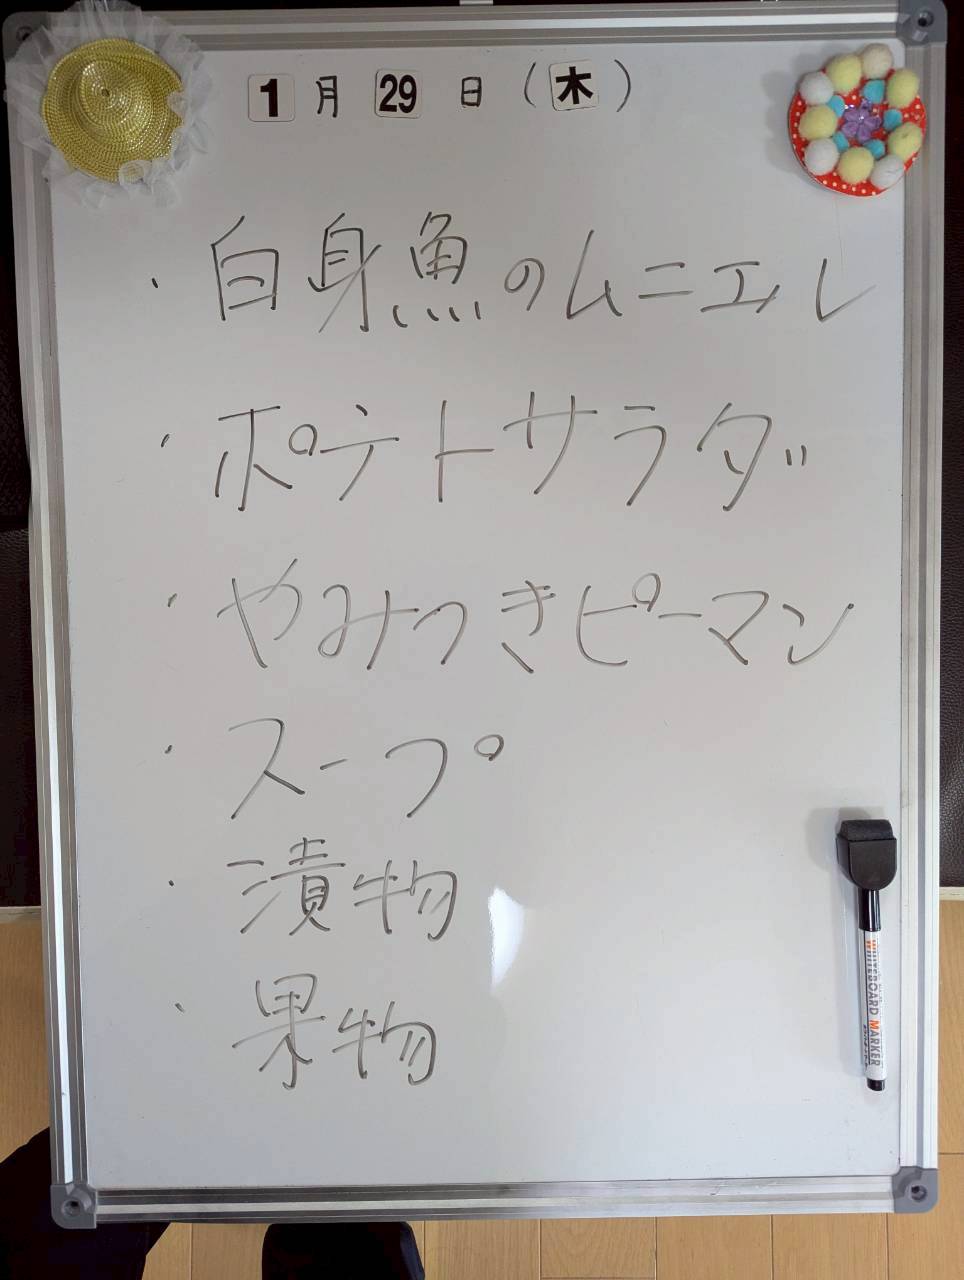 1月29日(木)
・白身魚のムニエル
・ポテトサラダ
・やみつきピーマン
・スープ
・漬物
・果物
WHITEBOARD MARKER